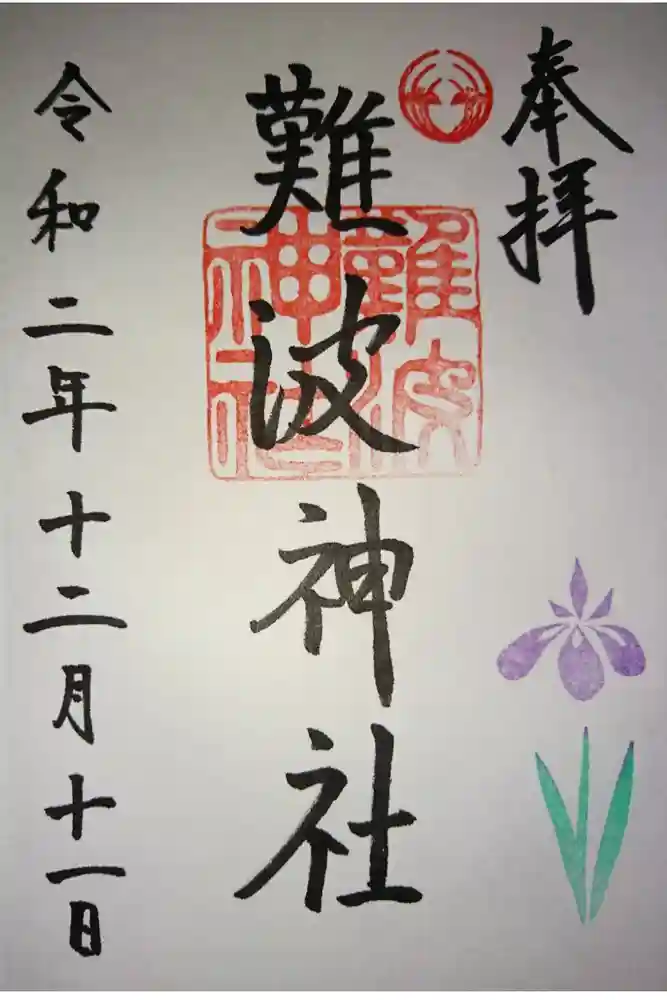 奉拝
難波神社
難波
神社
令和二年十二月十一日